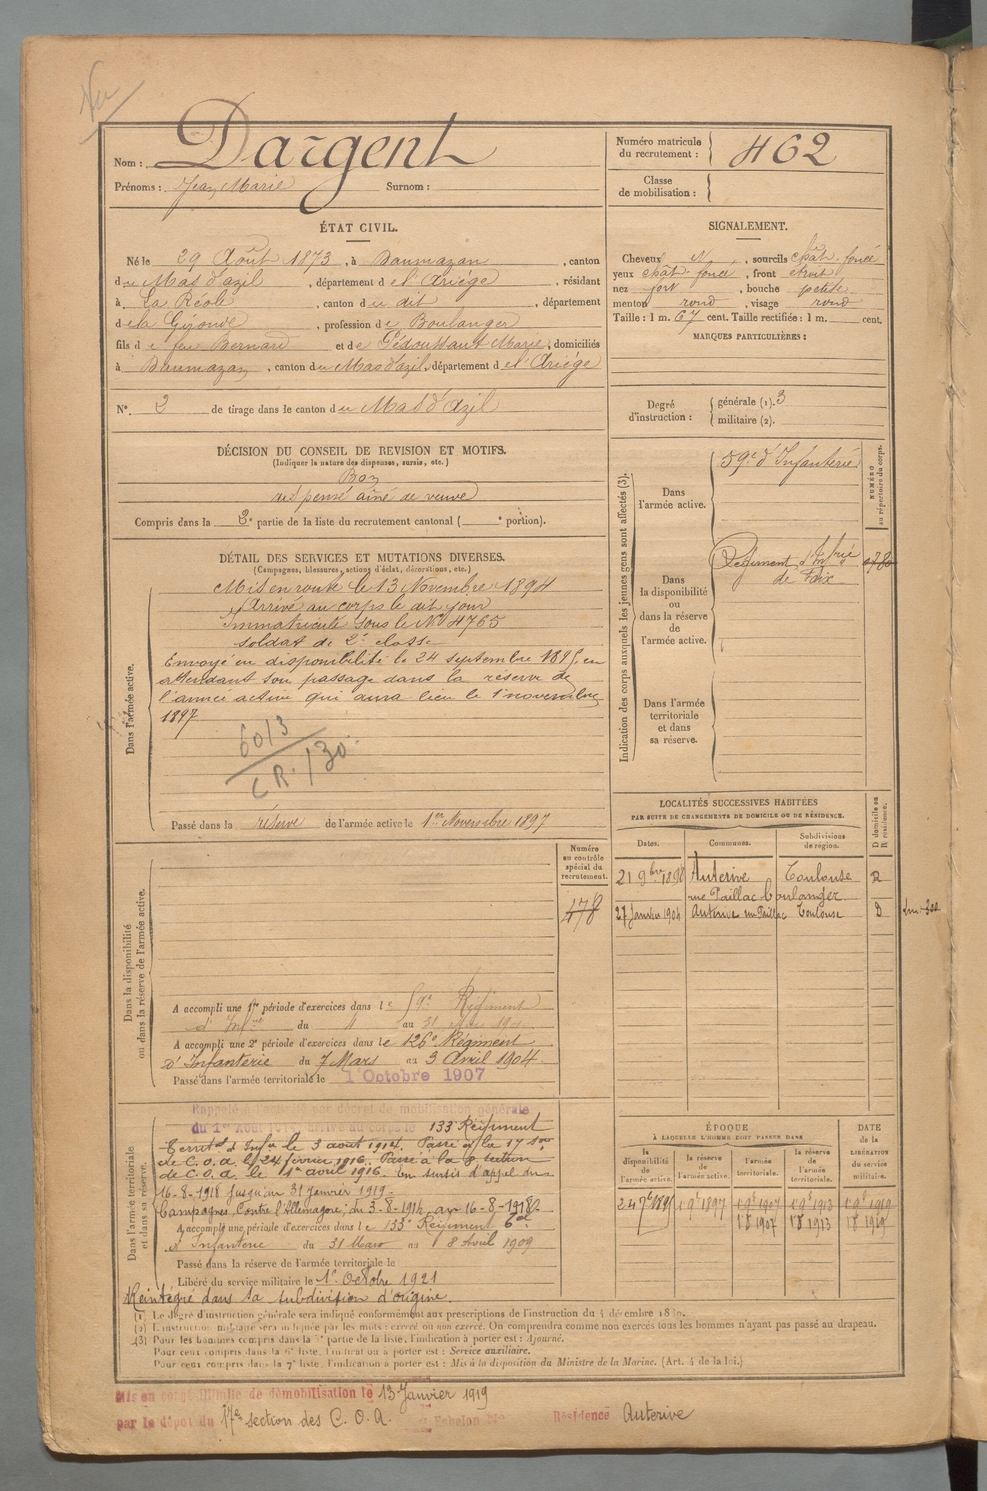 Nom : Dargent
Prénoms : Jean Marie Surnom :
Numéro matricule du recrutement : 462
Classe de mobilisation :
ÉTAT CIVIL.
Né le 29 Août 1873, à Daumazan, canton
du Mas d'azil, département de l'Ariège, résidant
à La Réole, canton du dit, département
de la Gironde, profession de Boulanger
fils de feu Bernard et de Pédoussaut Marie, domiciliés
à Daumazan, canton du Mas d'azil, département de l'Ariège
N°. 2 de tirage dans le canton du Mas d'Azil
SIGNALEMENT.
Cheveux N, sourcils chât. foncé
yeux chât. foncé, front étroit
nez fort, bouche petite
menton rond, visage rond
Taille : 1 m. 67 cent. Taille rectifiée : 1 m. cent.
MARQUES PARTICULIÈRES :
Degré d'instruction : générale (1). 3
militaire (2).
DÉCISION DU CONSEIL DE REVISION ET MOTIFS.
(Indiquer la nature des dispenses, sursis, etc.)
Bon
dispensé aîné de veuve
Compris dans la 2e partie de la liste du recrutement cantonal ( e portion).
DÉTAIL DES SERVICES ET MUTATIONS DIVERSES.
(Campagnes, blessures, actions d'éclat, décorations, etc.)
Dans l'armée active.
Mis en route le 13 Novembre 1894
Arrivé au corps le dit jour
Immatriculé sous le No 4765
soldat de 2e classe
Envoyé en disponibilité le 24 septembre 1895, en
attendant son passage dans la réserve de
l'armée active qui aura lieu le 1 novembre
1897
6013
CR. /30
Passé dans la réserve de l'armée active le 1er Novembre 1897
Indication des corps auxquels les jeunes gens sont affectés (3).
NUMÉRO au répertoire du corps.
Dans l'armée active.
59e d'Infanterie
Dans la disponibilité ou dans la réserve de l'armée active.
Régiment d'Infrie
de Foix
Dans l'armée territoriale et dans sa réserve.
LOCALITÉS SUCCESSIVES HABITÉES
PAR SUITE DE CHANGEMENTS DE DOMICILE OU DE RÉSIDENCE.
Dates. Communes. Subdivisions de région. D domicile ou R résidence.
21 9bre 1898 Auterive Toulouse R
rue Paillac boulanger
27 Janvier 1904 Auterive rue Paillac Toulouse D
Dans la disponibilité ou dans la réserve de l'armée active.
Numéro au contrôle spécial du recrutement.
478
A accompli une 1re période d'exercices dans le 59e Régiment
d'Infrie du au 31
A accompli une 2e période d'exercices dans le 126e Régiment
d'Infanterie du 7 Mars au 3 Avril 1904.
Passé dans l'armée territoriale le 1 Octobre 1907
Dans l'armée territoriale et dans sa réserve.
Rappelé à l'activité par décret de mobilisation générale
du 1er Août 1914, arrivé au corps le 133 Régiment
Territ d'Infie le 3 août 1914. Passé à la 17 son
de C.O.A. le 24 février 1916. Passé à la 8 section
de C.O.A. le 1er avril 1916. En sursis d'appel du
16-8-1918 jusqu'au 31 janvier 1919.
Campagnes, Contre l'Allemagne: du 3-8-1914 au 16-8-1918.
A accompli une période d'exercices dans le 133e Régiment
d'Infanterie du 31 Mars au 8 Avril 1909
Passé dans la réserve de l'armée territoriale le
Libéré du service militaire le 1er Octobre 1921
Réintégré dans sa subdivision d'origine.
ÉPOQUE
À LAQUELLE L'HOMME DOIT PASSER DANS
la disponibilité de l'armée active. la réserve de l'armée active. l'armée territoriale. la réserve de l'armée territoriale. DATE de la LIBÉRATION du service militaire.
24 7e 1895 1 9e 1897 1 9e 1907 1 9e 1913 1 9e 1919
1 8 1907 1 8 1913 1 8 1919
(1) Le degré d'instruction générale sera indiqué conformément aux prescriptions de l'instruction du 4 décembre 1889.
(2) L'instruction militaire sera indiquée par les mots : exercé ou non exercé. On comprendra comme non exercés tous les hommes n'ayant pas passé au drapeau.
(3) Pour les hommes compris dans la 5e partie de la liste, l'indication à porter est : Ajourné.
Pour ceux compris dans la 6e liste, l'indication à porter est : Service auxiliaire.
Pour ceux compris dans la 7e liste, l'indication à porter est : Mis à la disposition du Ministre de la Marine. (Art. 4 de la loi.)
Mis en congé illimité de démobilisation le 13 Janvier 1919
par le dépôt du 17e section des C.O.A. Echelon No Résidence Auterive